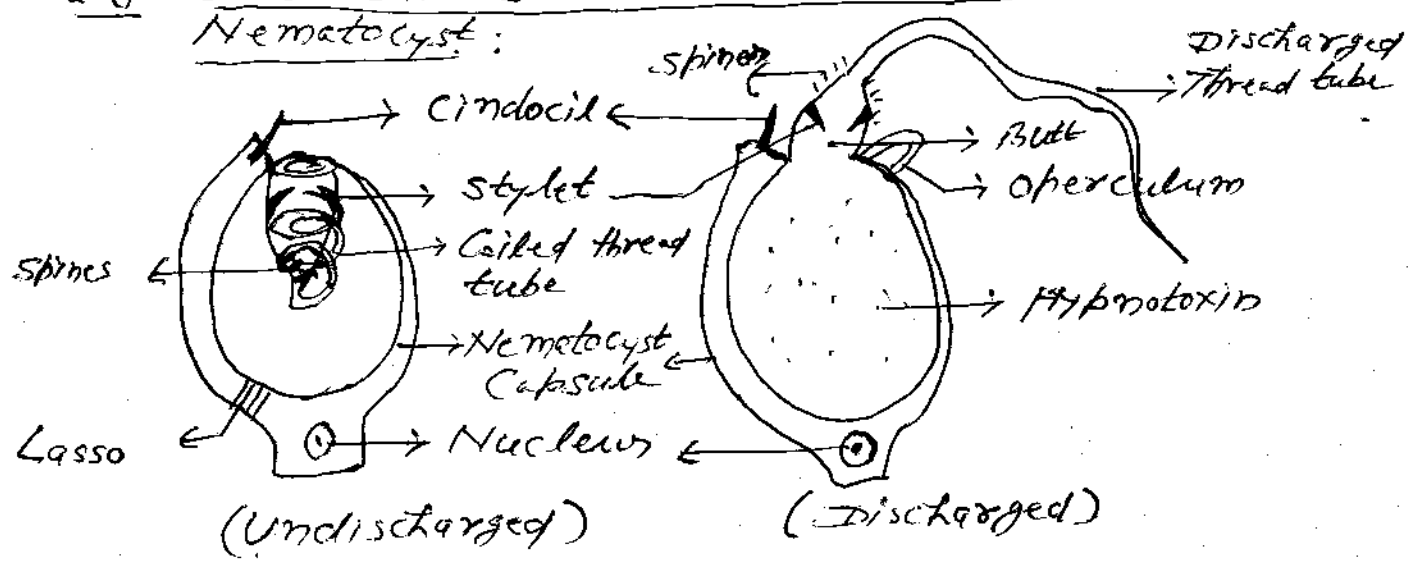 Nematocyst:
Spines
Discharged
Thread tube
Cindocil
Butt
Stylet
Operculum
Coiled thread
tube
Spines
Hypnotoxin
Nematocyst
Capsule
Lasso
Nucleus
(Undischarged)
(Discharged)